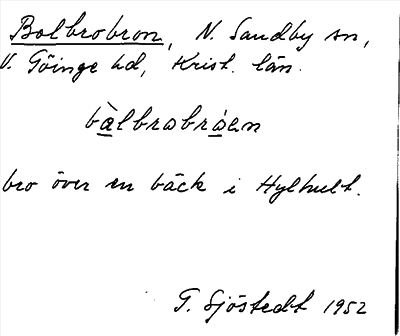 Bolbrobron, N. Sandby sn,
V. Göinge hd, Krist. län.
bàlbrabråen
bro över en bäck i Hylhult.
G. Sjöstedt 1952